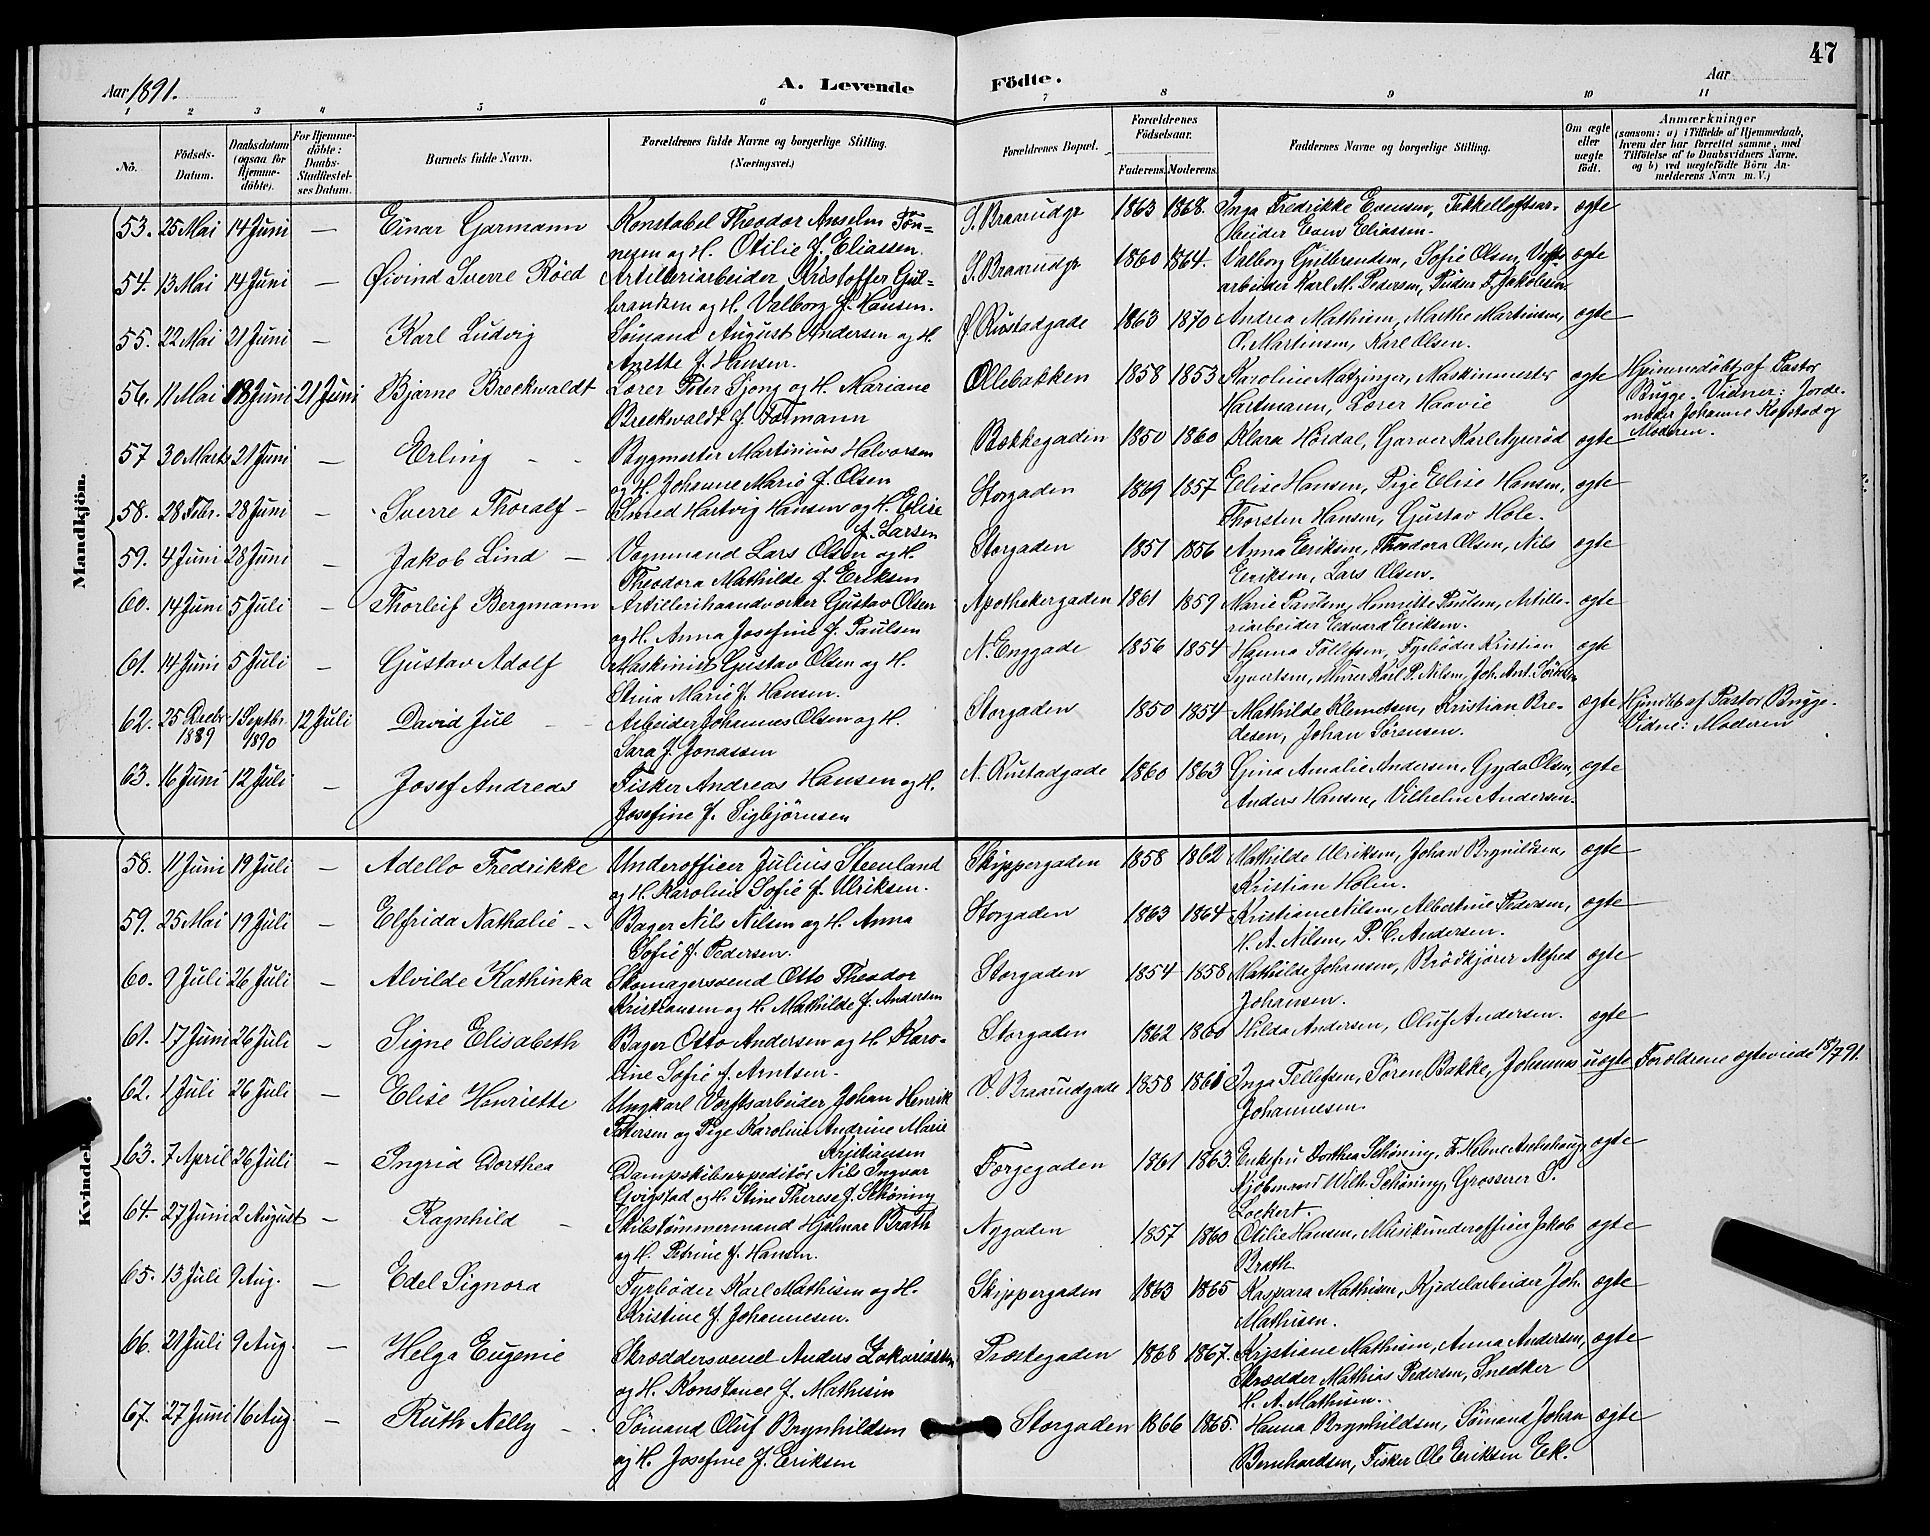 47
Aar 1891.
A. Levende
Födte.
Aar
1 2 3 4 5 6 7 8 9 10 11
No.
Födsels-Datum.
Daabsdatum (ogsaa for Hjemme-döbte).
For Hjemme-döbte: Daabs-Stadfæstel-ses Datum.
Barnets fulde Navn.
Forældrenes fulde Navne og borgerlige Stilling. (Næringsvei.)
Forældrenes Bopæl.
Forældrenes Födselsaar.
Faderens. Moderens.
Faddernes Navne og borgerlige Stilling.
Om ægte eller uægte födt.
Anmærkninger
(saasom: a) i Tilfælde af Hjemmedaab, hvem der har forrettet samme, med Tilföielse af to Daabsvidners Navne, og b) ved uægtefödte Börn An-melderens Navn m. V.)
Mandkjön.
53. 25 Mai 14 Juni — Einar Garmann Konstabel Theodor Anselm Tön= S. Braarudgr 1863 1868. Inga Fredrikke Evensen, Takkelloftsar= ægte
nesen og H. Otilie f. Eliassen. beider Even Eliassen.
54. 13 Mai 14 Juni — Øivind Sverre Röed Artilleriarbeider Kristoffer Gul= S. Braarudgr 1860 1864. Valborg Gulbrandsen, Sofie Olsen, Verfts= ægte
brandsen og H. Valborg f. Hansen. arbeider Karl M. Pedersen, Peder F. Jakobsen
55. 22 Mai 21 Juni — Karl Ludvig Sömand August Andersen og H. Ø. Rustadgade 1863 1870 Andrea Mathisen, Marthe Martinsen, ægte
Anette f. Hansen. O. Martinsen, Karl Olsen.
56. 11 Mai 13 Juni 21 Juni Bjarne Breckwaldt Lærer Peter Sjong og H. Mariane Ollebakken 1858 1853 Karoline Matzinger, Maskinmester ægte Hjemmedöbt af Pastor
Breckwaldt f. Totmann Hartmann, Lærer Haavie Bugge. Vidner: Jorde=
moder Johanne Kopstad og
Moderen.
57 30 Marts 21 Juni — Erling — Bygmester Martinius Halvorsen Bakkegaden 1850 1860 Klara Hördal, Garver Karl Nygröd ægte
og H. Johanne Marie f. Olsen
58. 28 Febr. 28 Juni — Sverre Thoralf — Smed Hartvig Hansen og H. Elise Storgaden 1869 1857 Elise Hansen, Pige Elise Hansen, ægte
f. Larsen Thorsten Hansen, Gustav Hole.
59. 4 Juni 28 Juni — Jakob Lind — Vognmand Lars Olsen og H. Storgaden 1851 1856 Anna Eriksen, Theodora Olsen, Nils ægte
Theodora Mathilde f. Eriksen Eriksen, Lars Olsen.
60. 14 Juni 5 Juli — Thorleif Bergmann Artillerihaandværker Gustav Olsen Apothekergaden 1861 1859 Marie Paulsen, Henriette Paulsen, Artille= ægte
og H. Anna Josefine f. Paulsen riarbeider Edvard Eriksen.
61. 14 Juni 5 Juli — Gustav Adolf Maskinist Gustav Olsen og H. N. Enggade 1856 1854 Hanna Tollefsen, Fyrböder Kristian ægte
Stina Marie f. Hansen. Syvertsen, Murer Karl P. Nilsen, Joh. Ant. Sörensen
62. 25 Decbr 1889 1 Septbr. 1890 12 Juli David Jul — Arbeider Johannes Olsen og H. Storgaden 1850 1854 Mathilde Klemetsen, Kristian Bre= ægte Hjmdbt af Pastor Bugge.
Sara f. Jonassen desen, Johan Sörensen. Vidne: Moderen
63. 16 Juni 12 Juli — Josef Andreas Fisker Andreas Hansen og H. N. Rustadgade 1860 1863 Gina Amalie Andersen, Gyda Olsen, ægte
Josefine f. Sigbjörnsen Anders Hansen, Vilhelm Andersen.
Kvindek
58. 11 Juni 19 Juli — Adello Fredrikke Underofficer Julius Steenland Skippergaden 1858 1862 Mathilde Ulriksen, Johan Brynildsen, ægte
og H. Karoline Sofie f. Ulriksen. Kristian Holm.
59. 25 Mai 19 Juli — Elfrida Nathalie — Bager Nils Nilsen og H. Anna Storgaden 1863 1864 Kristiane Nilsen, Albertine Pedersen, ægte
Sofie f. Pedersen. H. A. Nilsen, P. C. Andersen.
60. 9 Juli 26 Juli — Alvilde Kathinka Skomagersvend Otto Theodor Storgaden 1854 1858 Mathilde Johansen, Brödkjörer Alfred ægte
Kristiansen og H. Mathilde f. Andersen Johansen.
61. 17 Juni 26 Juli — Signe Elisabeth Bager Otto Andersen og H. Karo= Storgaden 1862 1860 Hilda Andersen, Oluf Andersen. ægte
line Sofie f. Arntsen.
62. 1 Juli 26 Juli — Elise Henriette Ungkarl Verftsarbeider Johan Henrik V. Braarudgade 1858 1861 Inga Tellefsen, Sören Bakke, Johannes uægte Forældrene ægteviede 18/7 91.
Pettersen og Pige Karoline Andrine Marie Johannesen.
Kristiansen
63. 7 April 26 Juli — Ingrid Dorthea Dampskibsexpeditör Nils Ingvar Færgegaden 1861 1863. Enkefru Dorthea Schöning, Fr. Helene Ankehaug, ægte
Qvigstad og H. Stine Therese f. Schöning Kjöbmand Wilh. Schöning, Grosserer S.
Lockert.
64. 27 Juni 2 August — Ragnhild — Skibstömmermand Hjalmar Brath Nygaden 1857 1860 Otilie Hansen, Musikunderofficer Jakob ægte
og H. Petrine f. Hansen. Brath
65. 13 Juli 9 Aug. — Edel Signora Fyrböder Karl Mathisen og H. Skippergaden 1863 1865 Kaspara Mathisen, Kjedelarbeider Joh. ægte
Kristine f. Johannesen. Mathisen.
66. 21 Juli 9 Aug. — Helga Eugenie Skræddersvend Anders Zakariassen Præstegaden 1868 1867. Kristiane Mathisen, Anna Andersen, ægte
og H. Konstance f. Mathisen Skrædder Mathias Pedersen, Snedker
H. A. Mathisen.
67. 27 Juni 16 Aug. — Ruth Nelly — Sömand Oluf Brynhildsen Storgaden 1866 1865. Hanna Brynhildsen, Sömand Johan ægte
og H. Josefine f. Eriksen Bernhardsen, Fisker Ole Eriksen Ek.